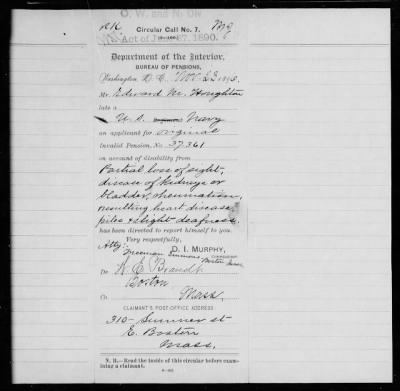 O. W. and N. Div
Circular Call No. 7.
Act of June 27, 1890.
Department of the Interior,
BUREAU OF PENSIONS,
Washington, D. C., Nov 23 189
Mr. Edward M. Houghton
late a
U. S. Navy
an applicant for original
Invalid Pension, No. 37361
on account of disability from
Partial loss of sight,
disease of kidneys or
bladder, rheumatism,
resulting heart disease,
piles & slight deafness.
has been directed to report himself to you.
Very respectfully,
Atty: D. I. MURPHY,
Freeman Simmons Commissioner
Boston Mass
Dr. Brandt
Boston
Co. Mass.
CLAIMANT'S POST-OFFICE ADDRESS
310- Sumner st
E. Boston
Mass.
N. B.—Read the inside of this circular before exam-
ining a claimant.